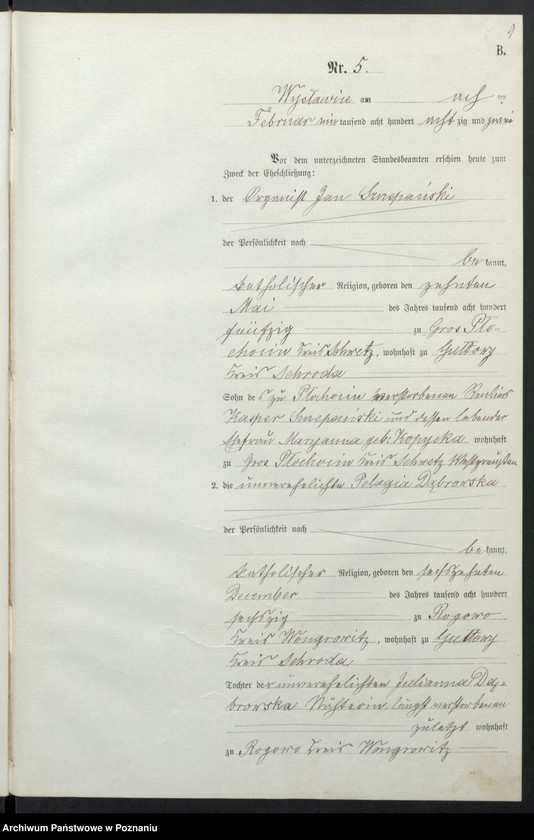 9
B.
Nr. 5.
Wyslawice am acht ten
Februar ein tausend acht hundert acht zig und zwei
Vor dem unterzeichneten Standesbeamten erschien heute zum
Zweck der Eheschließung:
1. der Organist Jan
der Persönlichkeit nach
be kannt,
katholischer Religion, geboren den zehnten
Mai des Jahres tausend acht hundert
fünfzig zu Gros Plo-
chocin Kreis Schwetz, wohnhaft zu Guttowy
Kreis Schroda
Sohn des zu Plochocin verstorbenen Rentiers
Kasper und dessen lebender
Ehefrau Maryanna geb. Kopycka wohnhaft
zu Gros Plochocin Kreis Schwetz Westpreußen
2. die unverehelichte Pelagia Dąbrowska
der Persönlichkeit nach
be kannt,
katholischer Religion, geboren den sechszehnten
December des Jahres tausend acht hundert
sechszig zu Rogowo
Kreis Wongrowitz, wohnhaft zu Guttowy
Kreis Schroda
Tochter der unverehelichten Julianna Dąb-
browska Nähterin, längst verstorbenen
zuletzt wohnhaft
zu Rogowo Kreis Wongrowitz
Archiwum Państwowe w Poznaniu